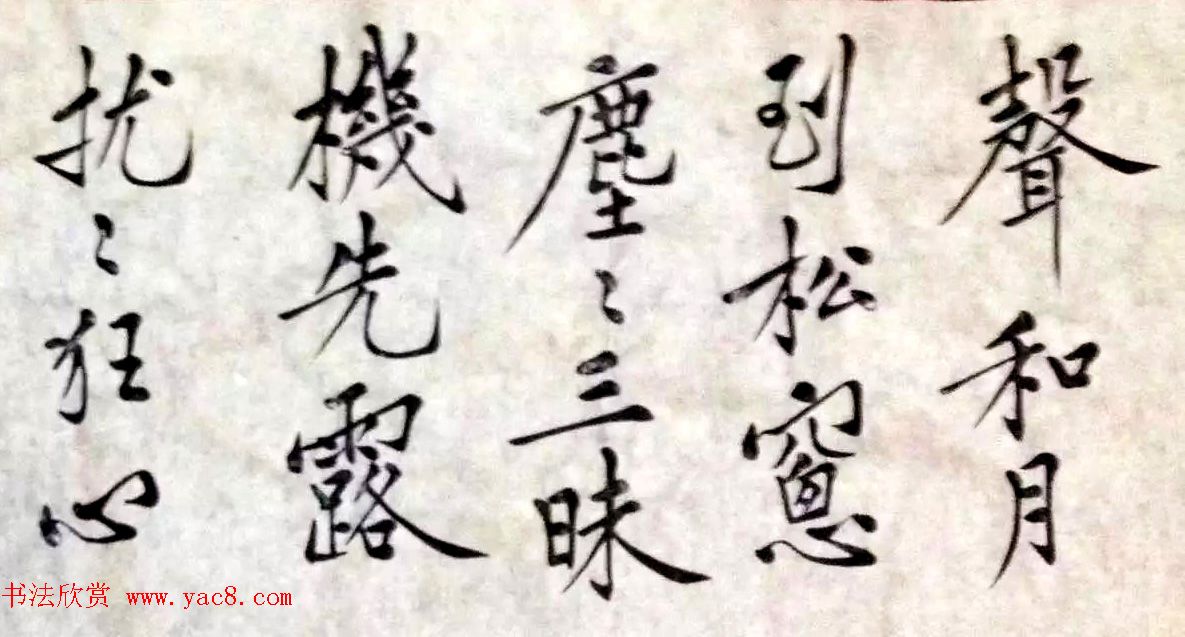 聲和月
到松窻
塵〻三昧
機先露
扰〻狂心
书法欣赏 www.yac8.com